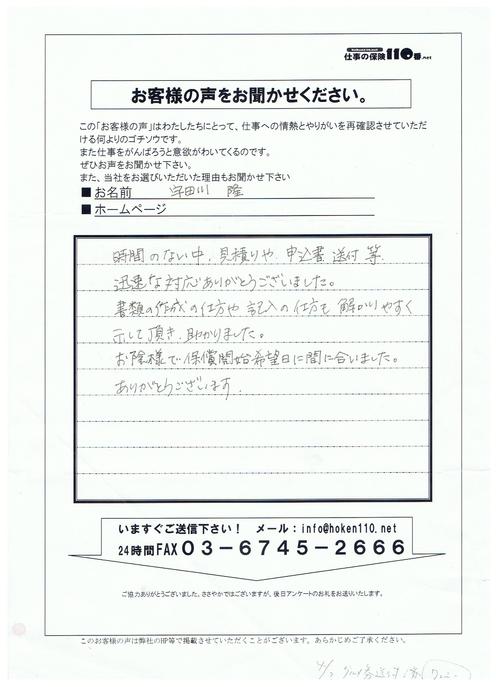 仕事の保険110番.net
お客様の声をお聞かせください。
この「お客様の声」はわたしたちにとって、仕事への情熱とやりがいを再確認させていただ
ける何よりのゴチソウです。
また仕事をがんばろうと意欲がわいてくるのです。
ぜひお声をお聞かせ下さい。
また、当社をお選びいただいた理由もお聞かせ下さい
■お名前 宇田川 隆
■ホームページ
時間のない中、見積りや、申込書 送付 等
迅速な対応ありがとうございました。
書類の作成の仕方や 記入の仕方も 解かりやすく
示して頂き、助かりました。
お陰様で 保償開始希望日に間に合いました。
ありがとうございます.
いますぐご送信下さい! メール:info@hoken110.net
24時間FAX 03-6745-2666
ご協力ありがとうございました。ささやかではございますが、後日アンケートのお礼をお送りいたします。
このお客様の声は弊社のHP等で掲載させていただくことがございます。あらかじめご了承ください。